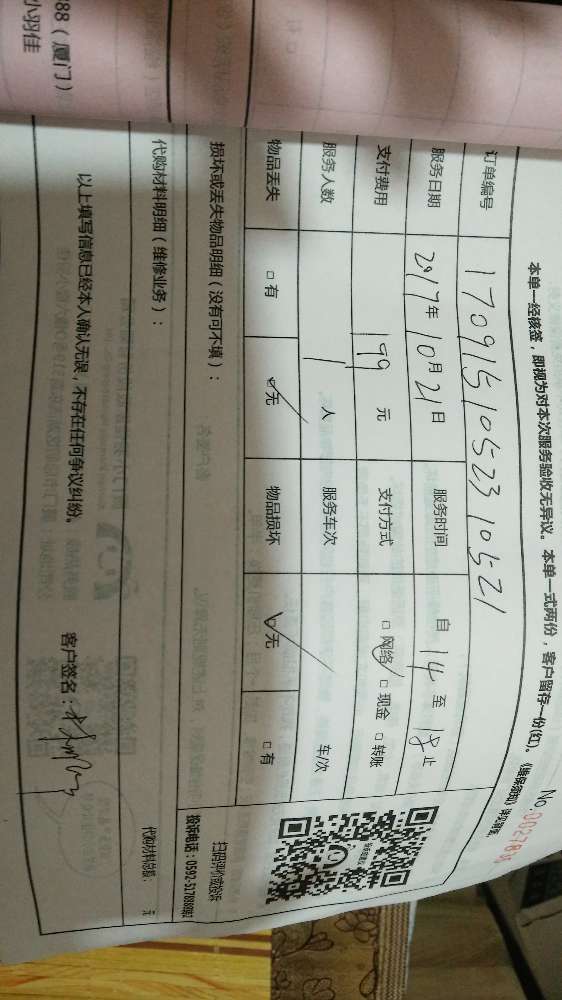 No.
本单一经核签，即视为对本次服务验收无异议。本单一式两份，客户留存一份(红)。
订单编号 1709151052310521
服务日期 2017年10月21日 服务时间 自14至18止
支付费用 199元 支付方式 □网络 □现金 □转账
服务人数 1人 服务车次 车/次
物品丢失 □有 □无 物品损坏 □无 □有
损坏或丢失物品明细（没有可不填）：
扫码评价或投诉
代购材料明细（维修业务）：
代购材料总额： 元
以上填写信息已经本人确认无误，不存在任何争议纠纷。
客户签名：
88（厦门）
小羽佳